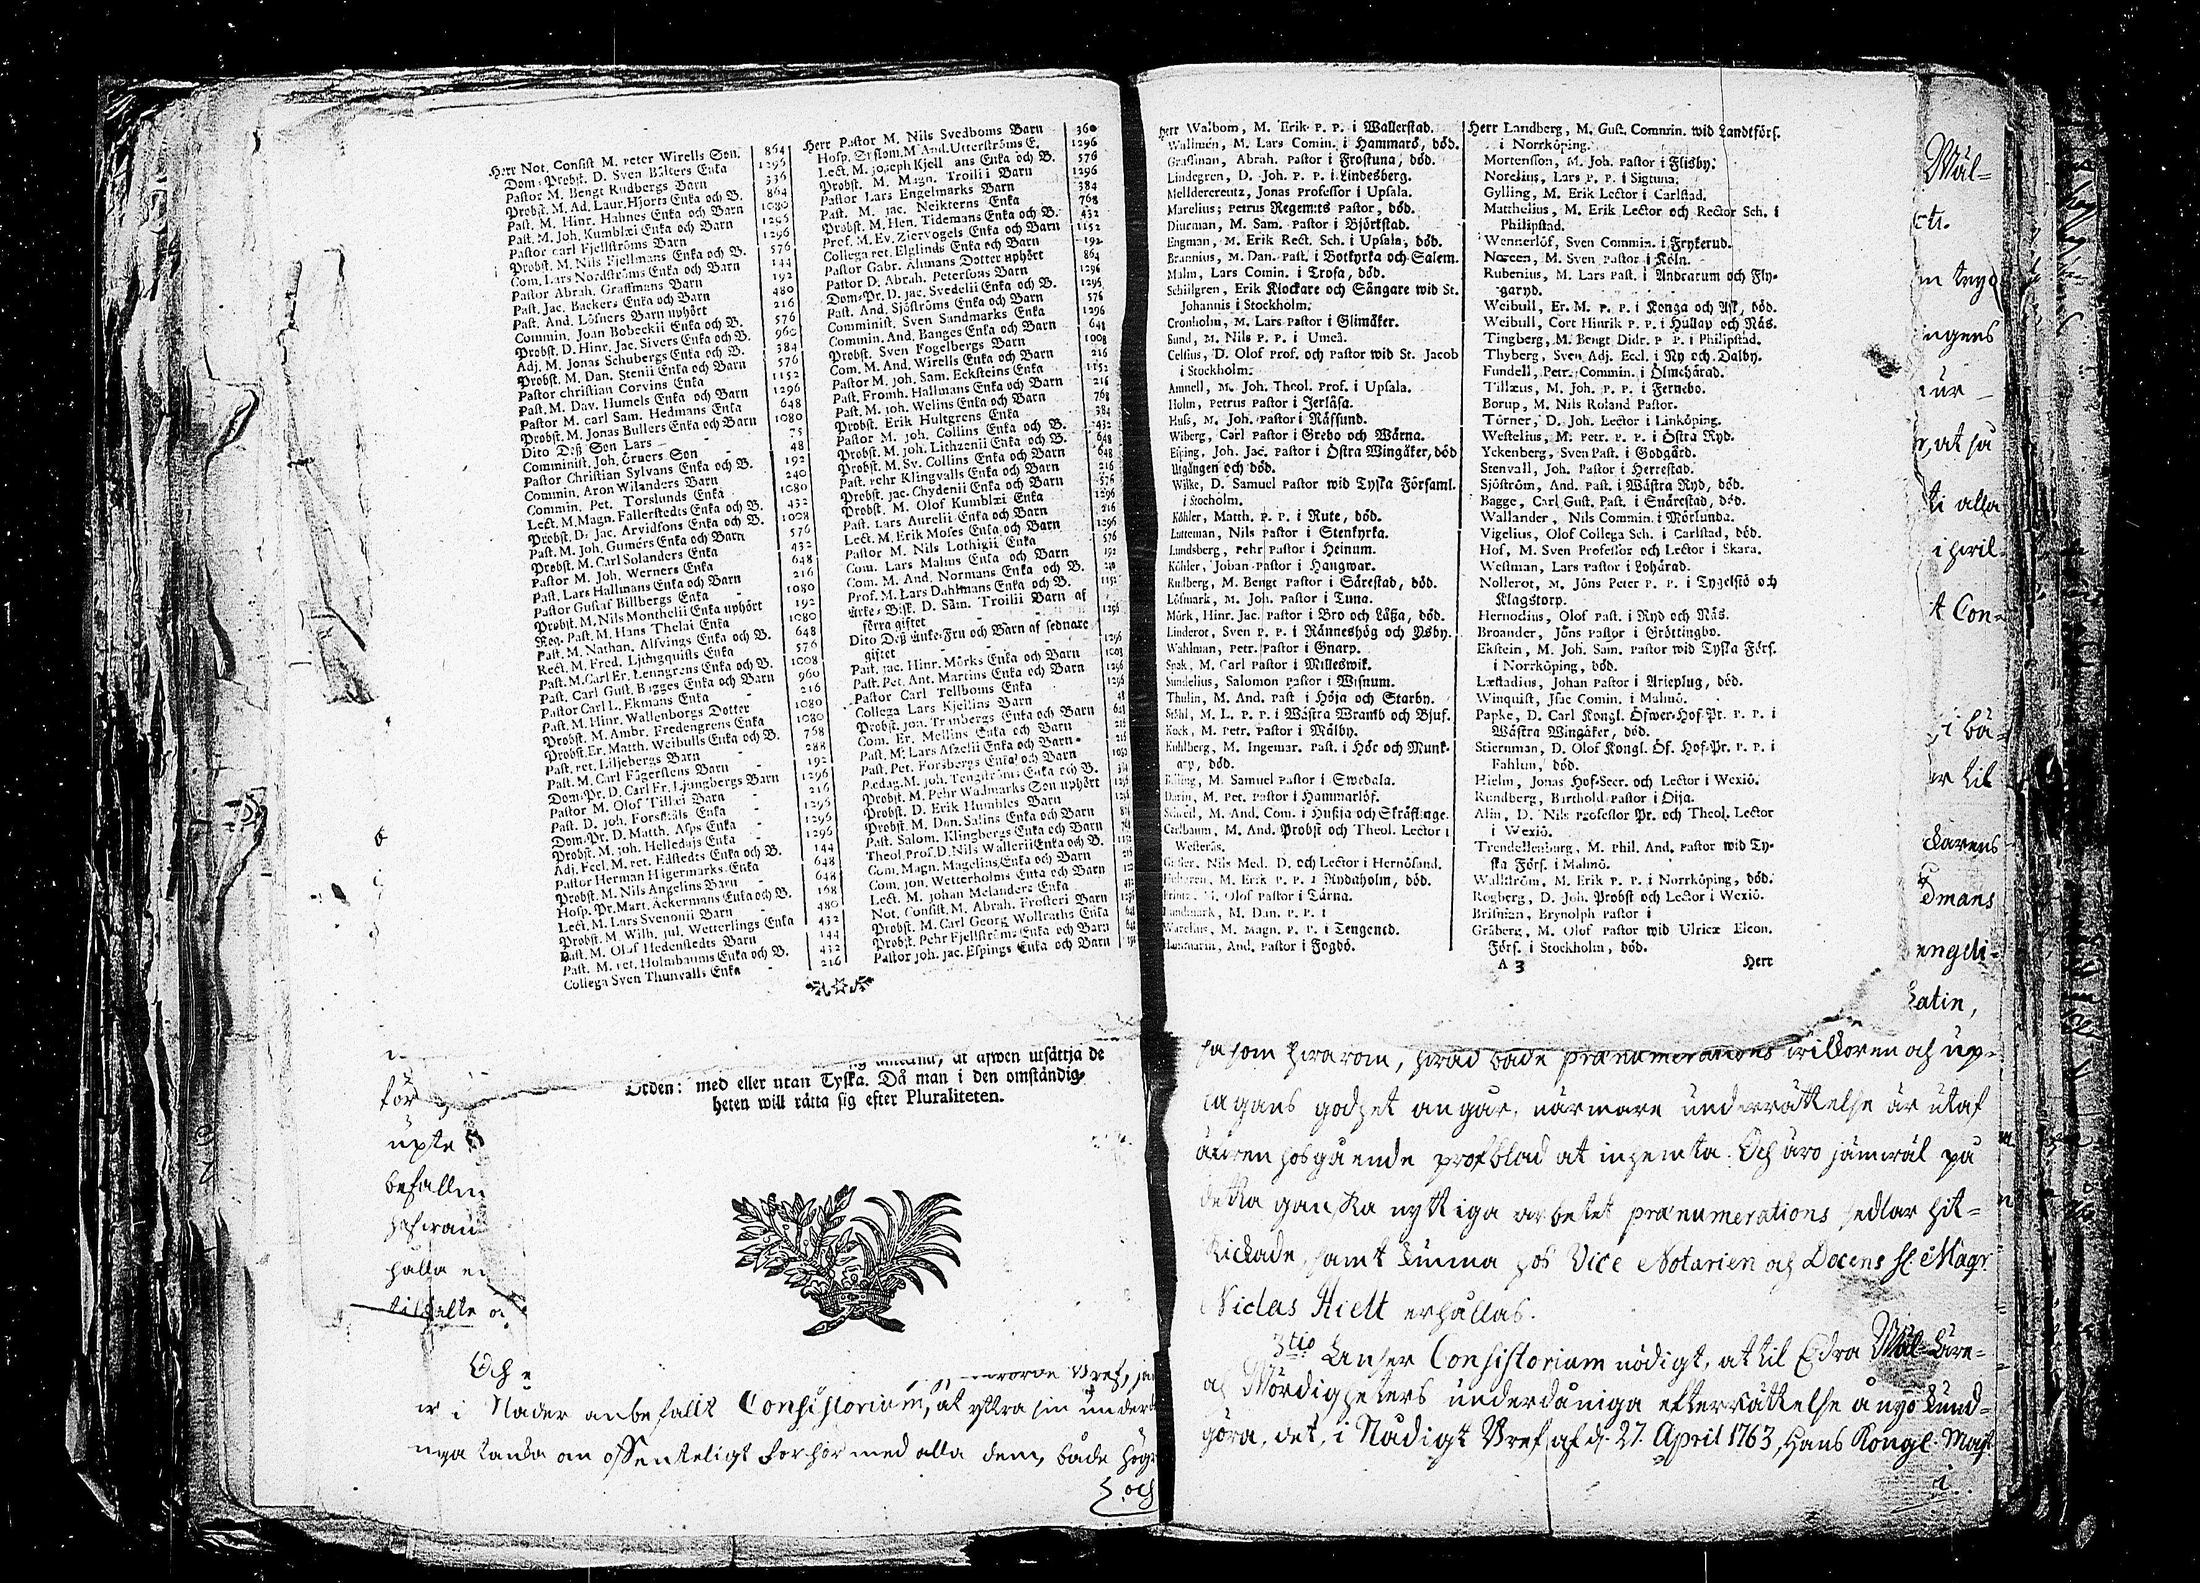 Herr Not. Consist M. Peter Wirells Son. 864
Dom-Probst. D. Sven Bälters Enka 1296
Pastor M. Bengt Rudbergs Barn 336
Probst. M. Ad. Laur. Hjorts Enka och B. 864
Past. M. Hinr. Hahnes Enka och Barn 1080
Past. M. Joh. Kumblæi Enka och Barn 1296
Pastor Carl Fjellströms Barn 1296
Probst. M. Nils Fjellmans Enka och B. 576
Com. Lars Nordströms Enka och Barn 144
Pastor Abrah. Graffmans Barn 192
Past. Jac. Backers Enka och Barn 480
Past. And. Löfners Barn uphört 216
Commin. Joan Bobeckii Enka och B. 576
Probst. D. Hinr. Jac. Sivers Enka och B. 960
Adj. M. Jonas Schubergs Enka och B. 384
Probst. M. Dan. Stenii Enka och Barn 576
Pastor Christian Corvins Enka 1152
Past. M. Dav. Humels Enka och Barn 1296
Pastor M. Carl Sam. Hedmans Enka 648
Probst. M. Jonas Bullers Enka och Barn 1080
Dito Deß Son Lars 75
Comminist. Joh. Gruers Son 48
Pastor Christian Sylvans Enka och B. 192
Commin. Aron Wilanders Barn 240
Commin. Pet. Torslunds Enka 1080
Lect. M. Magn. Fallerstedts Enka och B. 432
Probst. D. Jac. Arvidsons Enka och B. 1008
Past. M. Joh. Gumers Enka och Barn 576
Probst. M. Carl Solanders Enka 432
Pastor M. Joh. Werners Enka 648
Past. Lars Hallmans Enka och Barn 216
Pastor Gustaf Billbergs Enka 1080
Probst. M. Nils Monthelii Enka uphört 192
Reg. Past. M. Hans Thelai Enka 1080
Past. M. Nathan. Alfvings Enka och B. 648
Rect. M. Fred. Ljungquists Enka 576
Past. M. Carl Er. Lenngrens Enka och B. 1008
Past. Carl Gust. Bagges Enka och Barn 960
Pastor Carl L. Ekmans Enka 216
Past. M. Hinr. Wallenborgs Dotter 1080
Probst. M. Ambr. Fredengrens Enka 1080
Probst. Er. Matth. Weibulls Enka och B. 768
Past. Pet. Liljebergs Barn 288
Past. M. Carl Fägerstens Barn 192
Dom-Pr. D. Carl Fr. Ljungbergs Barn 1296
Pastor M. Olof Tillæi Barn 216
Past. D. Joh. Forsskåls Enka 1296
Dom-Pr. D. Matth. Asps Enka 1296
Probst. M. Joh. Helledajs Enka 1296
Adj. Eccl. M. Pet. Edstedts Enka och B. 144
Pastor Herman Högermarks Enka 648
Probst. M. Nils Angelins Barn 648
Hosp. Pr. Mart. Ackermans Enka och B. 168
Lect. M. Lars Svenonii Barn 480
Probst. M. Wilh. Jul. Wetterlings Enka 432
Past. M. Olof Hedenstedts Barn 144
Past. M. Pet. Holmbaums Enka och B. 432
Collega Sven Thunvalls Enka 216
Herr Pastor M. Nils Svedboms Barn 360
Hosp. Syslom. M. And. Utterströms E. 1296
Lect. M. Joseph Kjell ans Enka och B. 576
Probst. M. Magn. Troilii Barn 1296
Pastor Lars Engelmarks Barn 384
Past. M. Jac. Neikterns Enka 768
Probst. M. Hen. Tidemans Enka och B. 432
Prof. M. Ev. Ziervogels Enka och Barn 1152
Collega Pet. Elglinds Enka och Barn 192
Pastor Gabr. Åhmans Dotter uphört 864
Pastor D. Abrah. Petersons Barn 1296
Dom-Pr. D. Jac. Svedelii Enka och B. 1296
Past. And. Sjöströms Enka och Barn 576
Comminist. Sven Sandmarks Enka 1296
Commin. And. Banges Enka och Barn 648
Probst. Sven Fogelbergs Barn 1008
Com. M. And. Wirells Enka och Barn 216
Pastor M. Joh. Sam. Ecksteins Enka 1152
Past. Fromh. Hallmans Enka och Barn 216
Past. M. Joh. Welins Enka och Barn 768
Probst. Erik Hultgrens Enka 384
Pastor M. Joh. Collins Enka och B. 432
Probst. M. Joh. Lithzenii Enka och B. 648
Probst. M. Sv. Collins Enka och Barn 648
Past. Pehr Klingvalls Enka och Barn 216
Probst. Jac. Chydenii Enka och Barn 576
Probst. M. Olof Kumblæi Enka 1296
Past. Lars Aurelii Enka och Barn 216
Lect. M. Erik Moses Enka och Barn 1296
Pastor M. Nils Lothigii Enka 576
Com. Lars Malms Enka och Barn 192
Com. M. And. Normans Enka och B.
Prof. M. Lars Dahlmans Enka och B. 1152
Ärke-Bisk. D. Sam. Troilii Barn af
förra giftet 1296
Dito Deß Änke-Fru och Barn af sednare
giftet 1296
Past. Jac. Hinr. Mörks Enka och Barn 1008
Past. Pet. Ant. Martins Enka och Barn 1296
Pastor Carl Tellboms Enka 1296
Collega Lars Kjellins Barn 48
Probst. Jon. Tranbergs Enka och Barn
Com. Er. Mellins Enka och Barn
Past. M. Lars Afzelii Enka och Barn
Past. Pet. Forsbergs Enka och Barn
Pædag. M. Joh. Tengströms Enka och B.
Probst. M. Pehr Wadmarks Son uphört
Probst. D. Erik Humbles Barn
Probst. M. Dan. Salins Enka och Barn
Past. Salom. Klingbergs Enka och Barn
Theol. Prof. D. Nils Wallerii Enka och B.
Com. Magn. Magelins Enka och Barn
Com. Jon. Wetterholms Enka och Barn
Lect. M. Johan Melanders Enka
Not. Consist. M. Abrah. Frosteri Barn
Probst. M. Carl Georg Wollraths Enka
Probst. Pehr Fjellströms Enka och Barn
Pastor Joh. Jac. Espings Enka och Barn
at äfwen utsättja de
Orden: med eller utan Tyska. Då man i den omständig-
heten will rätta sig efter Pluraliteten.
för
upte
befallni
hafwan
hålla en
tilhalte
Och e
Bref,
er i Nåder anbefallt Consistorium, at yttra sin under
niga tanka om offenteligt förhör med alla dem, både högr
och
Herr Walbom, M. Erik P. P. i Wallerstad.
Wallmén, M. Lars Comin. i Hammarö, död.
Graffman, Abrah. Pastor i Frostuna, död.
Lindegren, D. Joh. P. P. i Lindesberg.
Melldercreutz, Jonas Professor i Upsala.
Marelius, Petrus Regem:ts Pastor, död.
Diurman, M. Sam. Pastor i Björkstad.
Engman, M. Erik Rect. Sch. i Upsala, död.
Brannius, M. Dan. Past. i Botkyrka och Salem.
Malm, Lars Comin. i Trosa, död.
Schillgren, Erik Klockare och Sångare wid St.
Johannis i Stockholm.
Cronholm, M. Lars Pastor i Glimåker.
Sund, M. Nils P. P. i Umeå.
Celsius, D. Olof Prof. och Pastor wid St. Jacob
i Stockholm.
Amnell, M. Joh. Theol. Prof. i Upsala.
Holm, Petrus Pastor i Jerlåsa.
Huss, M. Joh. Pastor i Räfsund.
Wiberg, Carl Pastor i Grebo och Wärna.
Esping, Joh. Jac. Pastor i Östra Wingåker, död
Utgången och död.
Wilke, D. Samuel Pastor wid Tyska Församl.
i Stocholm.
Köhler, Matth. P. P. i Rute, död.
Lutteman, Nils Pastor i Stenkyrka.
Lundsberg, Pehr Pastor i Heinum.
Köhler, Johan Pastor i Hangwar.
Rudberg, M. Bengt Pastor i Särestad, död.
Löfmark, M. Joh. Pastor i Tuna.
Mörk, Hinr. Jac. Pastor i Bro och Låßa, död.
Linderot, Sven P. P. iRänneslög och Ysby.
Wahlman, Petr. Pastor i Gnarp.
Spak, M. Carl Pastor i Milleswik.
Sundelius, Salomon Pastor i Wisnum.
Thulin, M. And. Past i Höja och Starby.
Ståhl, M. L. P. P. i Wästra Wramb och Bjuf.
Kock, M. Petr. Pastor i Målby.
Kuhlberg, M. Ingemar. Past. i Hör och Munk-
arp, död.
Billing, M. Samuel Pastor i Swedala.
Darin, M. Pet. Pastor i Hammarlöf.
And. Com. i Husija och Skräflinge.
Carlbaum, M. And. Probst och Theol. Lector i
Westerås.
Nils Med. D. och Lector i Hernösand.
M. Erik P. P. i Rydaholm, död.
Olof Pastor i Tärna.
Landmark, M. Dan. P. P. i
M. Magn. P. P. i Tengened.
Hammarin, And. Pastor i Fogdö.
Herr Landberg, M. Gust. Comnrin. wid Landtförs.
i Norrköping.
Mortensson, M. Joh. Pastor i Flisby.
Norelius, Lars P. P. i Sigtuna.
Gylling, M. Erik Lector i Carlstad.
Matthelius, M. Erik Lector och Rector Sch. i
Philipstad.
Wennerlöf, Sven Commin. i Frykerud.
Noreen, M. Sven Pastor i Köln.
Rubenius, M. Lars Past. i Andrarum och Fly-
garyd.
Weibull, Er. M. P. P. i Konga och Ask, död.
Weibull, Cort Hinrik P. P. i Hullap och Näs.
Tingberg, M. Bengt Didr. P P. i Philipstad.
Thyberg, Sven Adj. Eccl. i Ny och Dalby.
Fundell, Petr. Commin. i Ölmehärad.
Tillæus, M. Joh. P. P. i Fernebo.
Borup, M. Nils Roland Pastor.
Törner, D. Joh. Lector i Linköping.
Westelius, M. Petr. P. P. i Östra Ryd.
Yckenberg, Sven Past. i Godgård.
Stenvall, Joh. Pastor i Herrestad.
Sjöström, And. Past. i Wästra Ryd, död.
Bagge, Carl Gust. Past. i Snårestad, död.
Wallander, Nils Commin. i Mörlunda.
Vigelius, Olof Collega Sch. i Carlstad, död.
Hof, M. Sven Professor och Lector i Skara.
Westman, Lars Pastor i Lohärad.
Nollerot, M. Jöns Peter P. P. i Tygelsjö och
Klagstorp.
Hernodius, Olof Past. i Ryd och Näs.
Broander, Jöns Pastor i Gröttingbo.
Ekstein, M. Joh. Sam. Pastor wid Tyska Förs.
i Norrköping, död.
Læstadius, Johan Pastor i Arieplug, död.
Winquist, Isac Comin. i Malmö.
Papke, D. Carl Kongl. Öfwer-Hof-Pr. P. P. i
Wästra Wingåker, död.
Stiernman, D. Olof Kongl. Öf. Hof-Pr. P. P. i
Fahlun, död.
Hielm, Jonas Hof-Secr. och Lector i Wexiö.
Rundberg, Barthold Pastor i Oija.
Alin, D. Nils Professor Pr. och Theol. Lector
i Wexiö.
Trendellenburg, M. Phil. And. Pastor wid Ty-
ska Förs. i Malmö.
Wallström, M. Erik P. P. i Norrköping, död.
Rogberg, D. Joh. Probst och Lector i Wexiö.
Brisman, Brynolph Pastor i
Gråberg, M. Olof Pastor wid Ulricæ Eleon.
Förs. i Stockholm, död.
A 3 Herr
Mäl-
ctr.
m tryc
ingens
ur
r, at så
ti alla
i hwil-
t Con-
i bä-
er til
karens
dmans
engeli-
Latin,
såsom hwarom, hwad både prænumerations wilkoren och up-
lagans godhet angår, närmare underrättelse är utaf
äfwen hosgående profblad at inhemta. Och äro jämwäl på
detta ganska nyttiga arbetet prænumerations sedlar hit-
skickade, samt kunna hos Vice Notarien och Docens H. Magr.
Niclas Hiett erhållas.
3tio Anser Consistorium nödigt, at til Edra Mäl-Äre-
och Wördigheters underdåniga efterrättelse å nyo kund-
göra, det, i Nådigt Bref af d. 27. April 1763, Hans Kongl. Majt
i